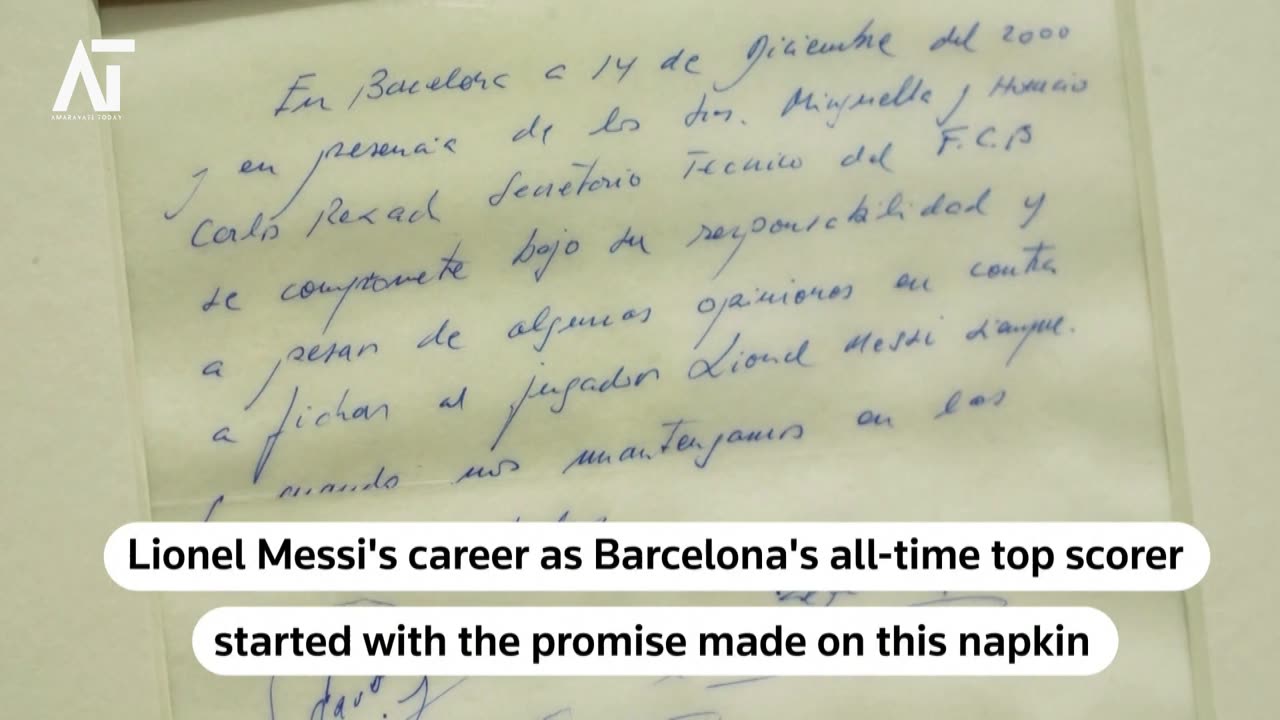 AT
AMARAVATI TODAY
En Barcelona a 14 de Diciembre del 2000
y en presencia de los Sres. Minguella y Horacio
Carlos Rexach Secretario Tecnico del F.C.B
se compromete bajo su responsabilidad y
a pesar de algunas opiniones en contra
a fichar al jugador Lionel Messi
cuando nos mantengamos en las
Lionel Messi's career as Barcelona's all-time top scorer
started with the promise made on this napkin